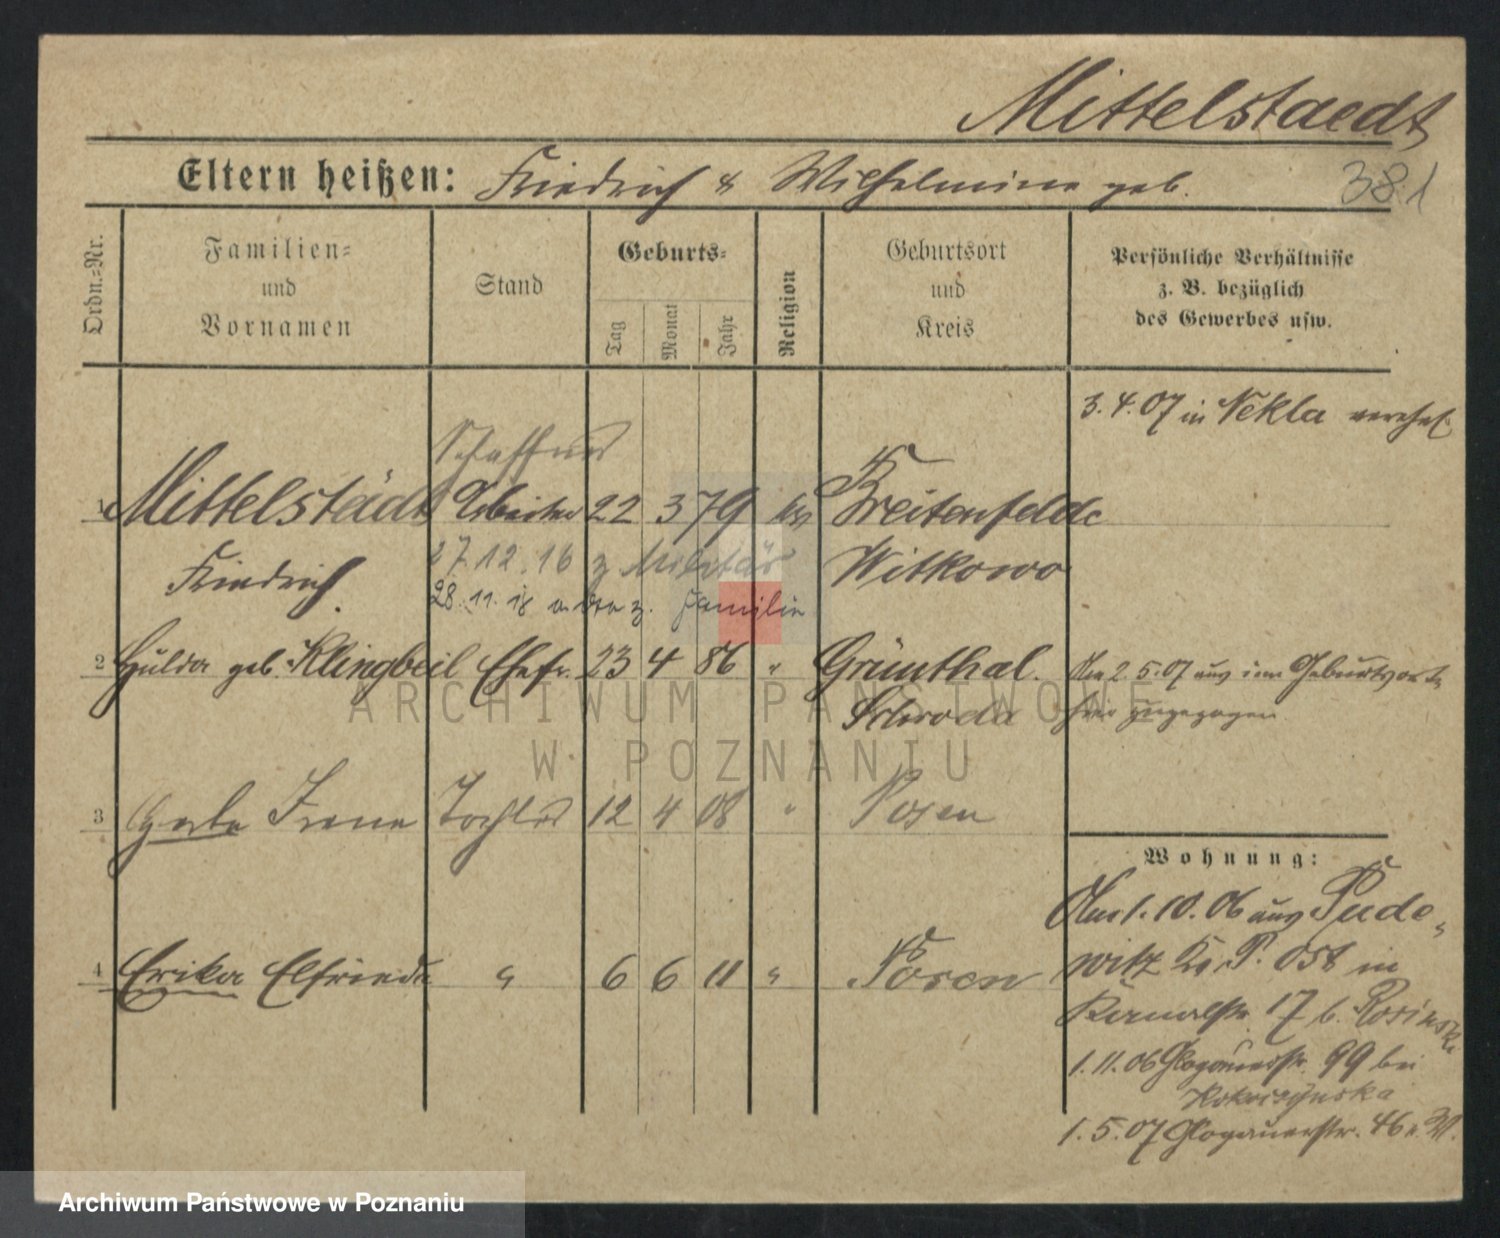 Mittelstaedt
Eltern heißen: Friedrich & Wilhelmine geb.
381
Ordn.-Nr.
Familien-
und
Vornamen
Stand
Geburts-
Tag
Monat
Jahr
Religion
Geburtsort
und
Kreis
Persönliche Verhältnisse
z. B. bezüglich
des Gewerbes usw.
3.4.07 in Nekla verehel.
Schaffner
1 Mittelstädt Arbeiter 22 3 79 ev Breitenfelde
Friedrich
27.12.16 z. Militär
Witkowo
28.11.18 z. Familie
2 Hulda geb. Klingbeil Ehefr. 23 4 86 " Grünthal.
Schroda
Am 2.5.07 aus im Geburtsorte
hier zugezogen
ARCHIWUM PAŃSTWOWE
W POZNANIU
3 Gerda Irene Tochter 12 4 08 " Posen
4 Erika Elfriede " 6 6 11 " Posen
Wohnung:
Am 1.10.06 aus Pude-
witz Kr. P. Ost in
17 b. Rosinski
1.11.06 Glogauerstr. 99 bei
1.5.07 Glogauerstr. 46
Archiwum Państwowe w Poznaniu